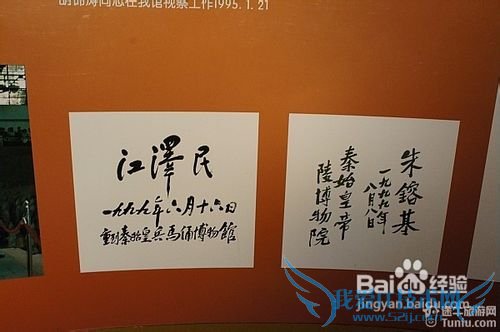 胡锦涛同志在我馆视察工作1995.1.21
江澤民
一九九九年六月十六日
重到秦始皇兵馬俑博物館
朱鎔基
一九九九年
八月八日
秦始皇帝
陵博物院
Baidu 百度 经验
jingyan.baidu.com
途牛旅游网
Tunlu.com
www.52ij.com